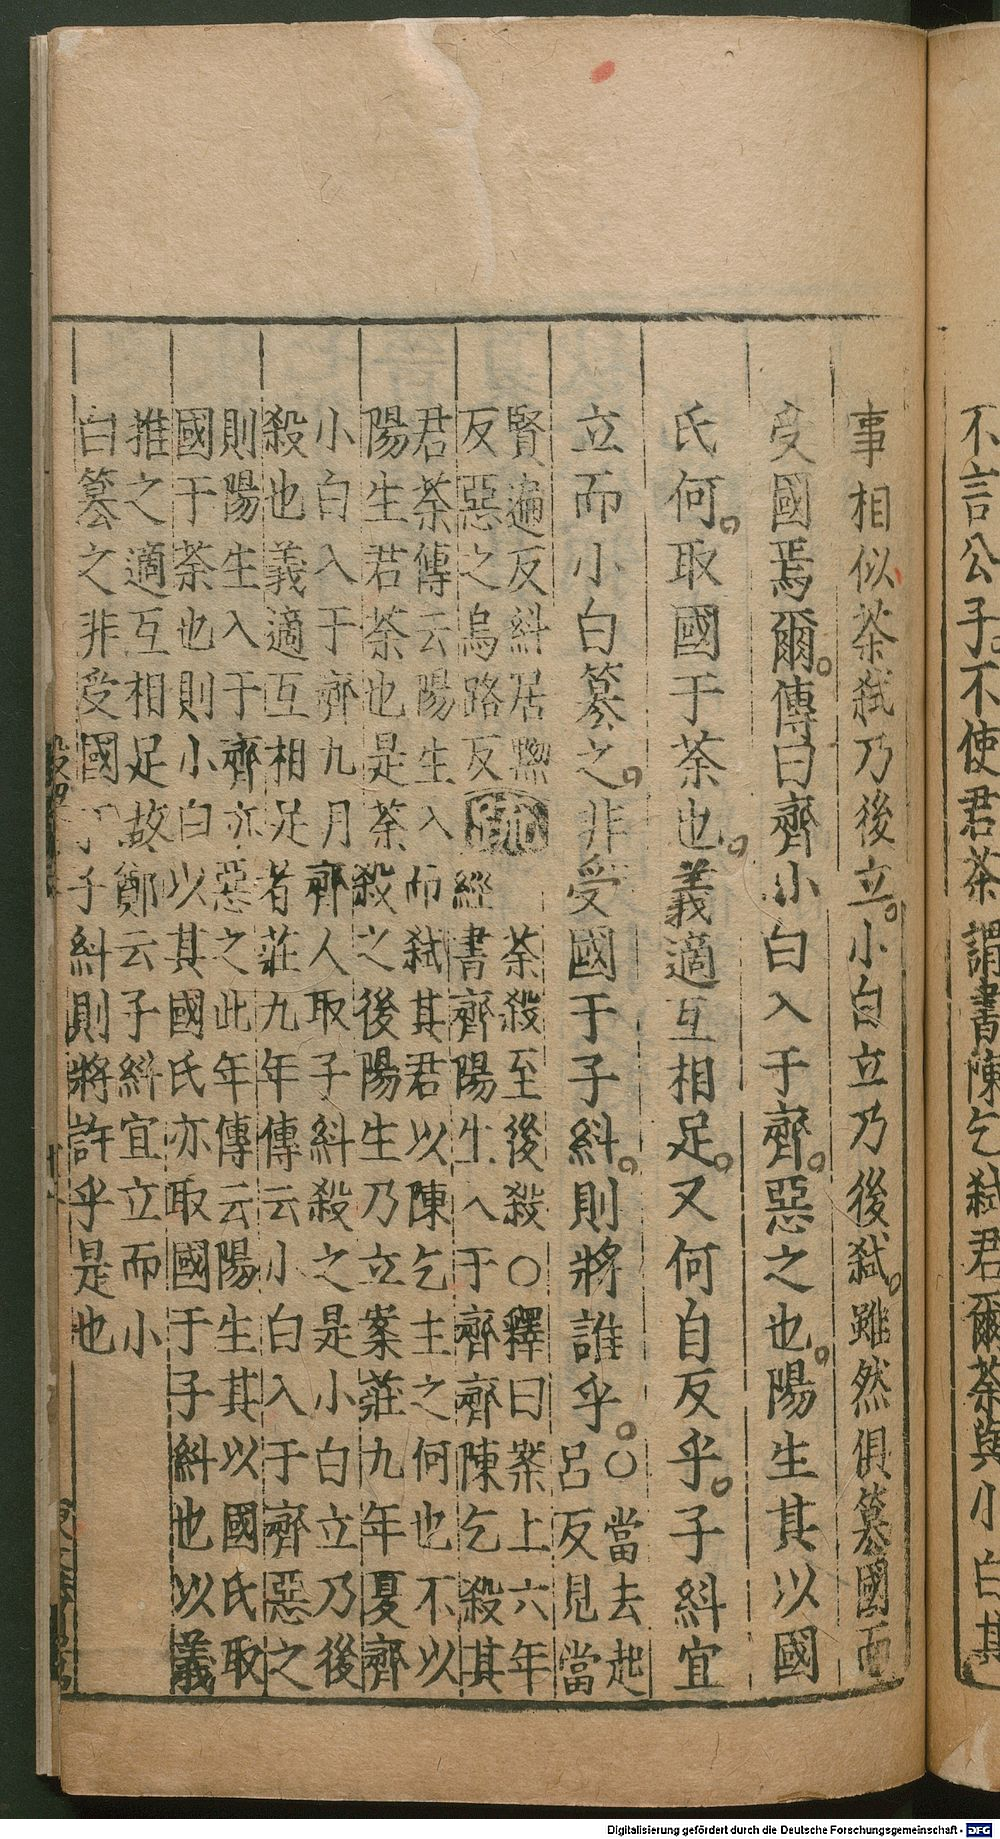 不言公子。不使君荼謂書陳乞弑君爾荼與小白其
事相似荼弑乃後立。小白立乃後弑。雖然俱篡國而
受國焉爾。傳曰齊小白入于齊。惡之也。陽生其以國
氏何。取國于荼也。義適互相足。又何自反乎。子糾宜
立而小白篡之。非受國于子糾。則將誰乎。○當去起
呂反見當
賢遍反糾居黝
反惡之烏路反
疏
荼殺至後殺○釋曰案上六年
經書齊陽生入于齊齊陳乞殺其
君荼傳云陽生入而弑其君以陳乞主之何也不以
陽生君荼也是荼殺之後陽生乃立案莊九年夏齊
小白入于齊九月齊人取子糾殺之是小白立乃後
殺也義適互相足者莊九年傳云小白入于齊惡之
則陽生入于齊亦惡之此年傳云陽生其以國氏取
國于荼也則小白以其國氏亦取國于子糾也以義
推之適互相足故鄭云子糾宜立而小
白篡之非受國于子糾則將許乎是也
Digitalisierung gefördert durch die Deutsche Forschungsgemeinschaft - DFG